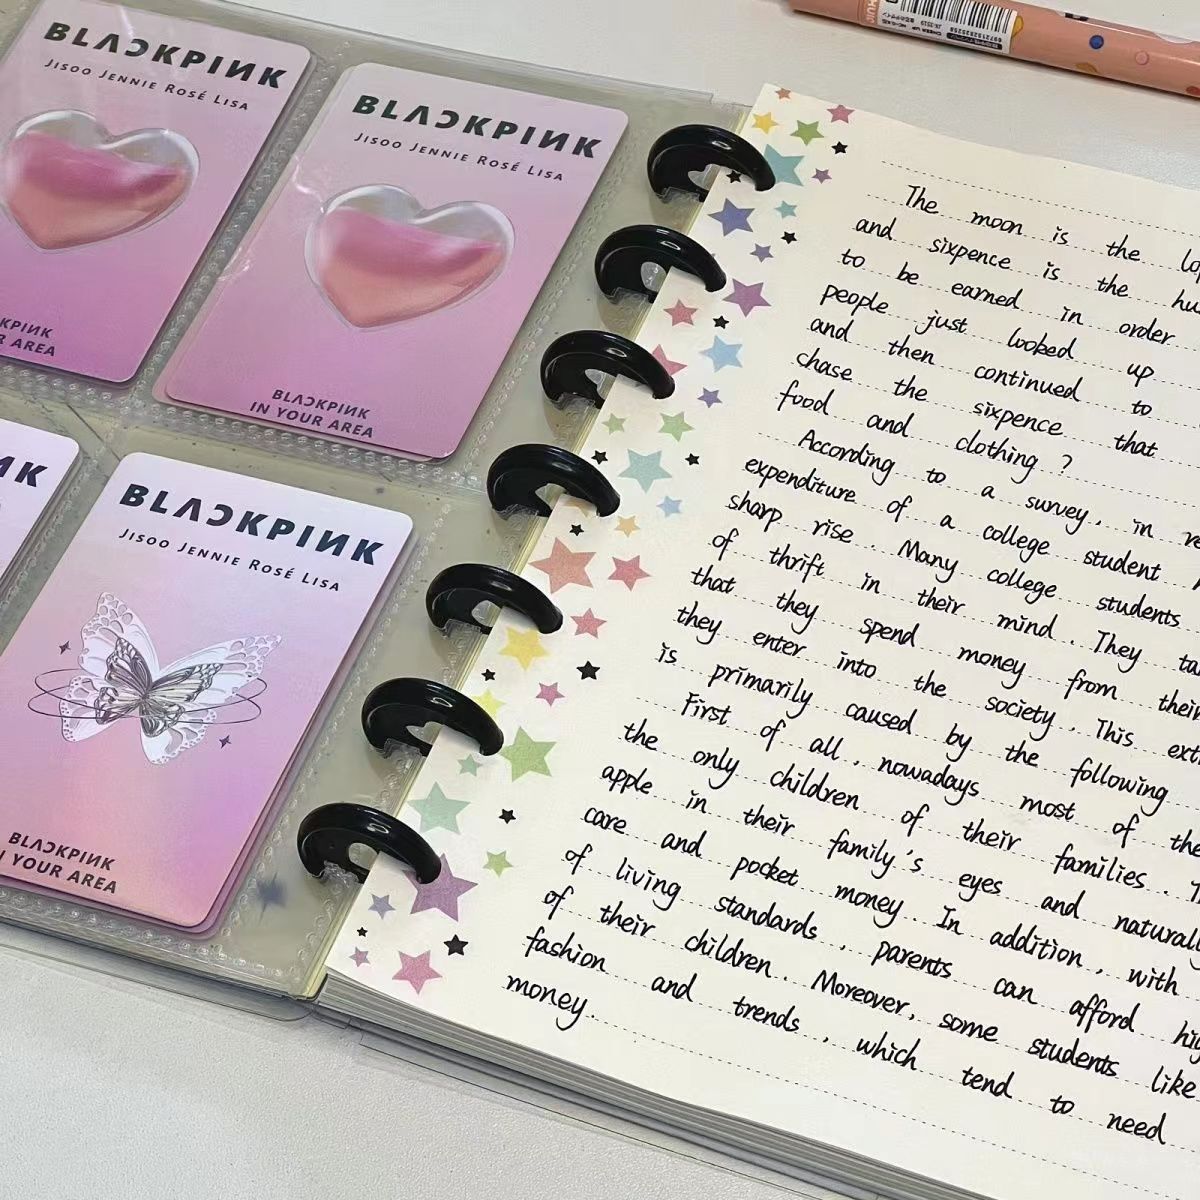 BLACKPINK
JISOO JENNIE ROSÉ LISA
BLACKPINK
JISOO JENNIE ROSÉ LISA
KPINK
R AREA
BLACKPINK
IN YOUR AREA
NK
BLACKPINK
JISOO JENNIE ROSÉ LISA
BLACKPINK
N YOUR AREA
The moon is the
and sixpence is the
to be earned in order
people just looked up
and then continued to
chase the sixpence that
food and clothing ?
According to a survey, in
expenditure of a college student
sharp rise. Many college students
of thrift in their mind. They
that they spend money from their
they enter into the society. This
is primarily caused by the following
First of all, nowadays most of the
the only children of their families.
apple in their family's eyes and naturally
care and pocket money. In addition, with
of living standards, parents can afford
of their children. Moreover, some students like
fashion and trends, which tend to need
money.